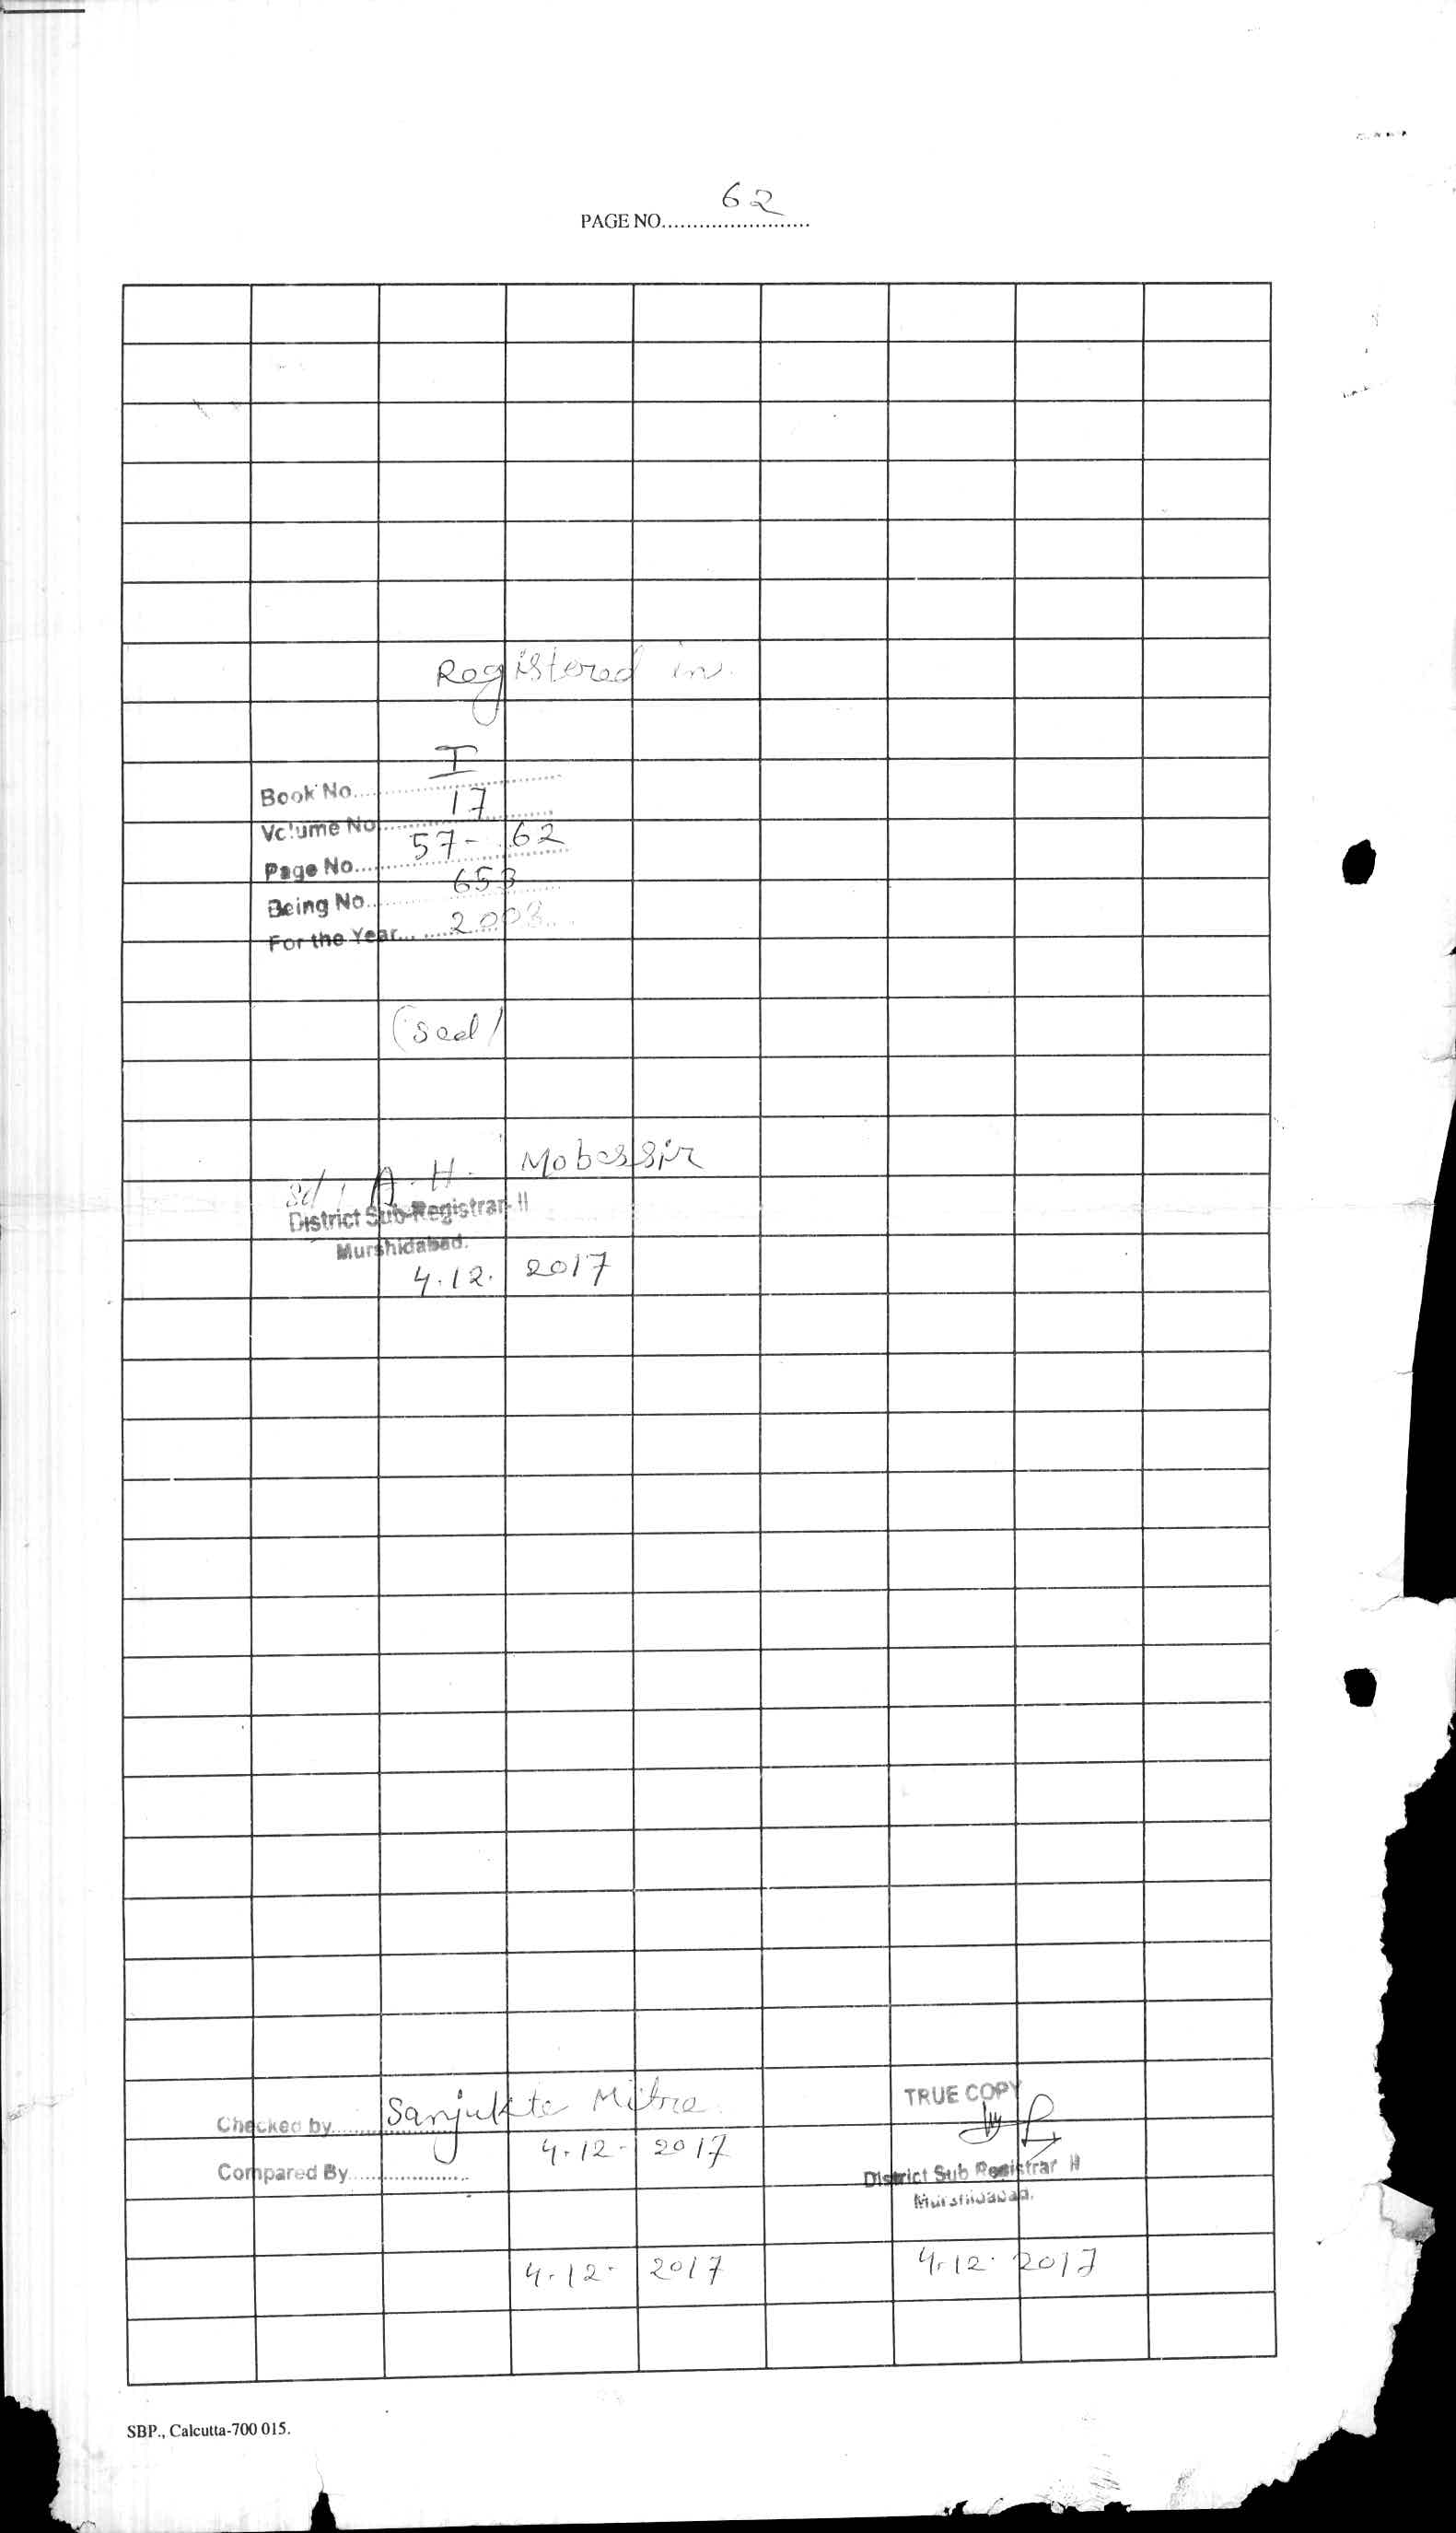 PAGE NO. 62
Registered in.
Book No. I
Volume No. 17
Page No. 57 - 62
Being No. 653
For the Year 2003
(Seal)
Sd/ A. H. Mobassir
District Sub-Registrar-II
Murshidabad.
4.12.2017
Checked by Sanjukta Mitra
4.12.2017
Compared By
4.12.2017
TRUE COPY
District Sub Registrar II
Murshidabad.
4.12.2017
SBP., Calcutta-700 015.